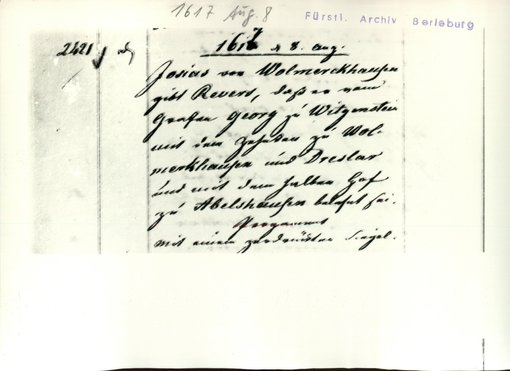 1617 Aug. 8
Fürstl. Archiv Berleburg
2421
1617 d 8. Aug.
Josias von Wolmerckhausen
gibt Revers, daß er vom
Grafen Georg zu Witgenstein
mit dem Zehnden zu Wol-
merkhausen und Dreslar
und mit dem halben Hof
zu Abelshausen belehnt sei.
Pergament
mit einem zerdrückten Siegel.